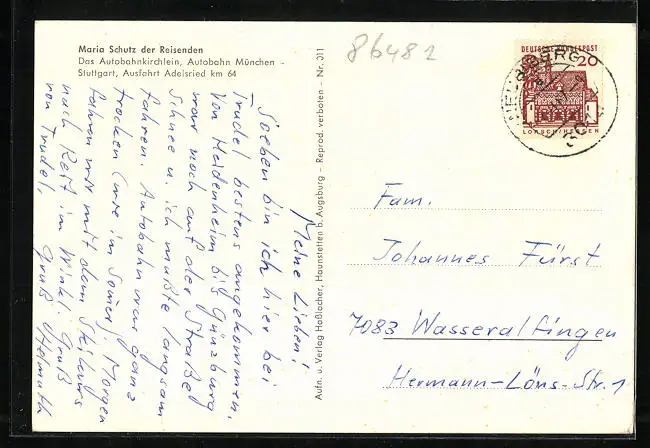 Maria Schutz der Reisenden
Das Autobahnkirchlein, Autobahn München -
Stuttgart, Ausfahrt Adelsried km 64
Meine Lieben!
Soeben bin ich hier bei
Trudel bestens angekommen.
Von Heidenheim bis Günzburg
war noch auf der Straße
Schnee u. ich mußte langsam
fahren. Autobahn war ganz
trocken (wie im Sommer). Morgen
fahren wir mit dem Skikurs
nach Reit im Winkl. Gruß
von Trudel,
Gruß Helmuth
Aufn. u. Verlag Haßlacher, Haunstetten b. Augsburg - Reprod. verboten - Nr. 311
86482
DEUTSCHE BUNDESPOST
20
LORSCH/HESSEN
Fam.
Johannes Fürst
7083 Wasseralfingen
Hermann-Löns-Str. 1